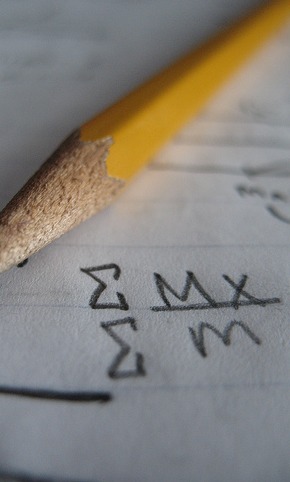 Σ Mx
Σ m